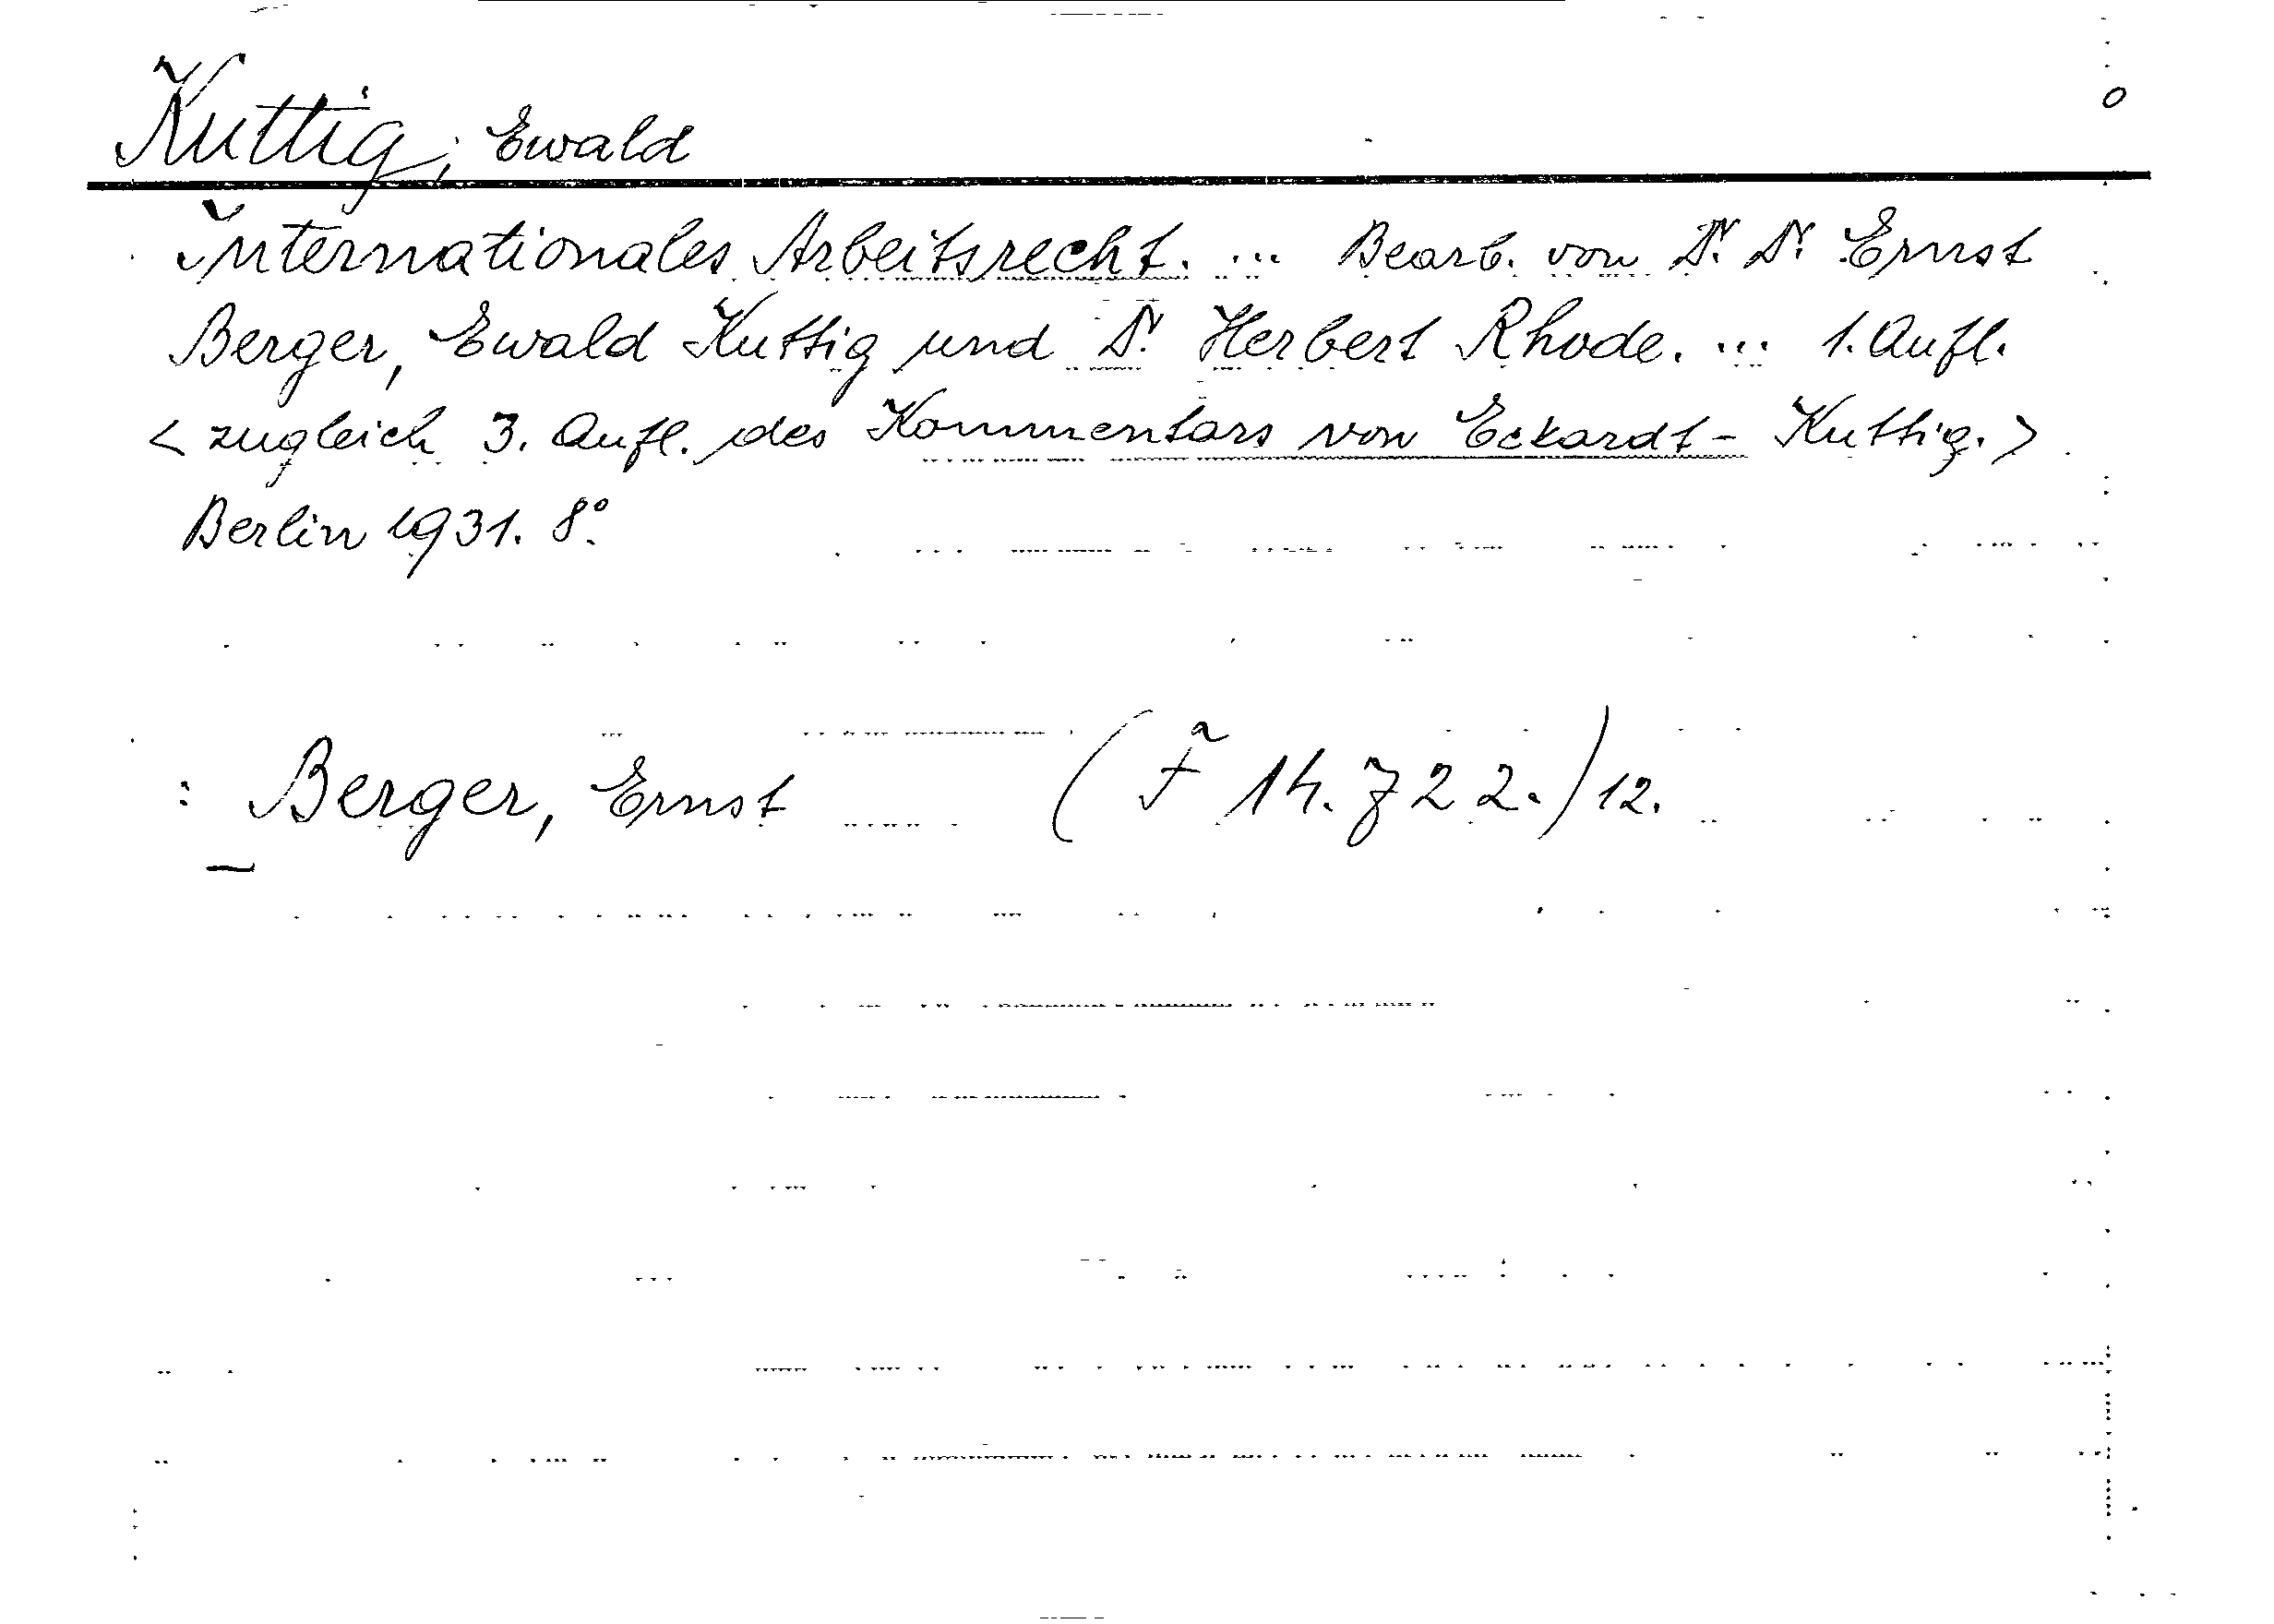 Kuttig, Ewald
Internationales Arbeitsrecht. ... Bearb. von Dr. Dr. Ernst
Berger, Ewald Kuttig und Dr. Herbert Rhode. ... 1. Aufl.
< zugleich 3. Aufl. des Kommentars von Eckardt - Kuttig. >
Berlin 1931. 8°.
: Berger, Ernst (F 14. 722.) 12.